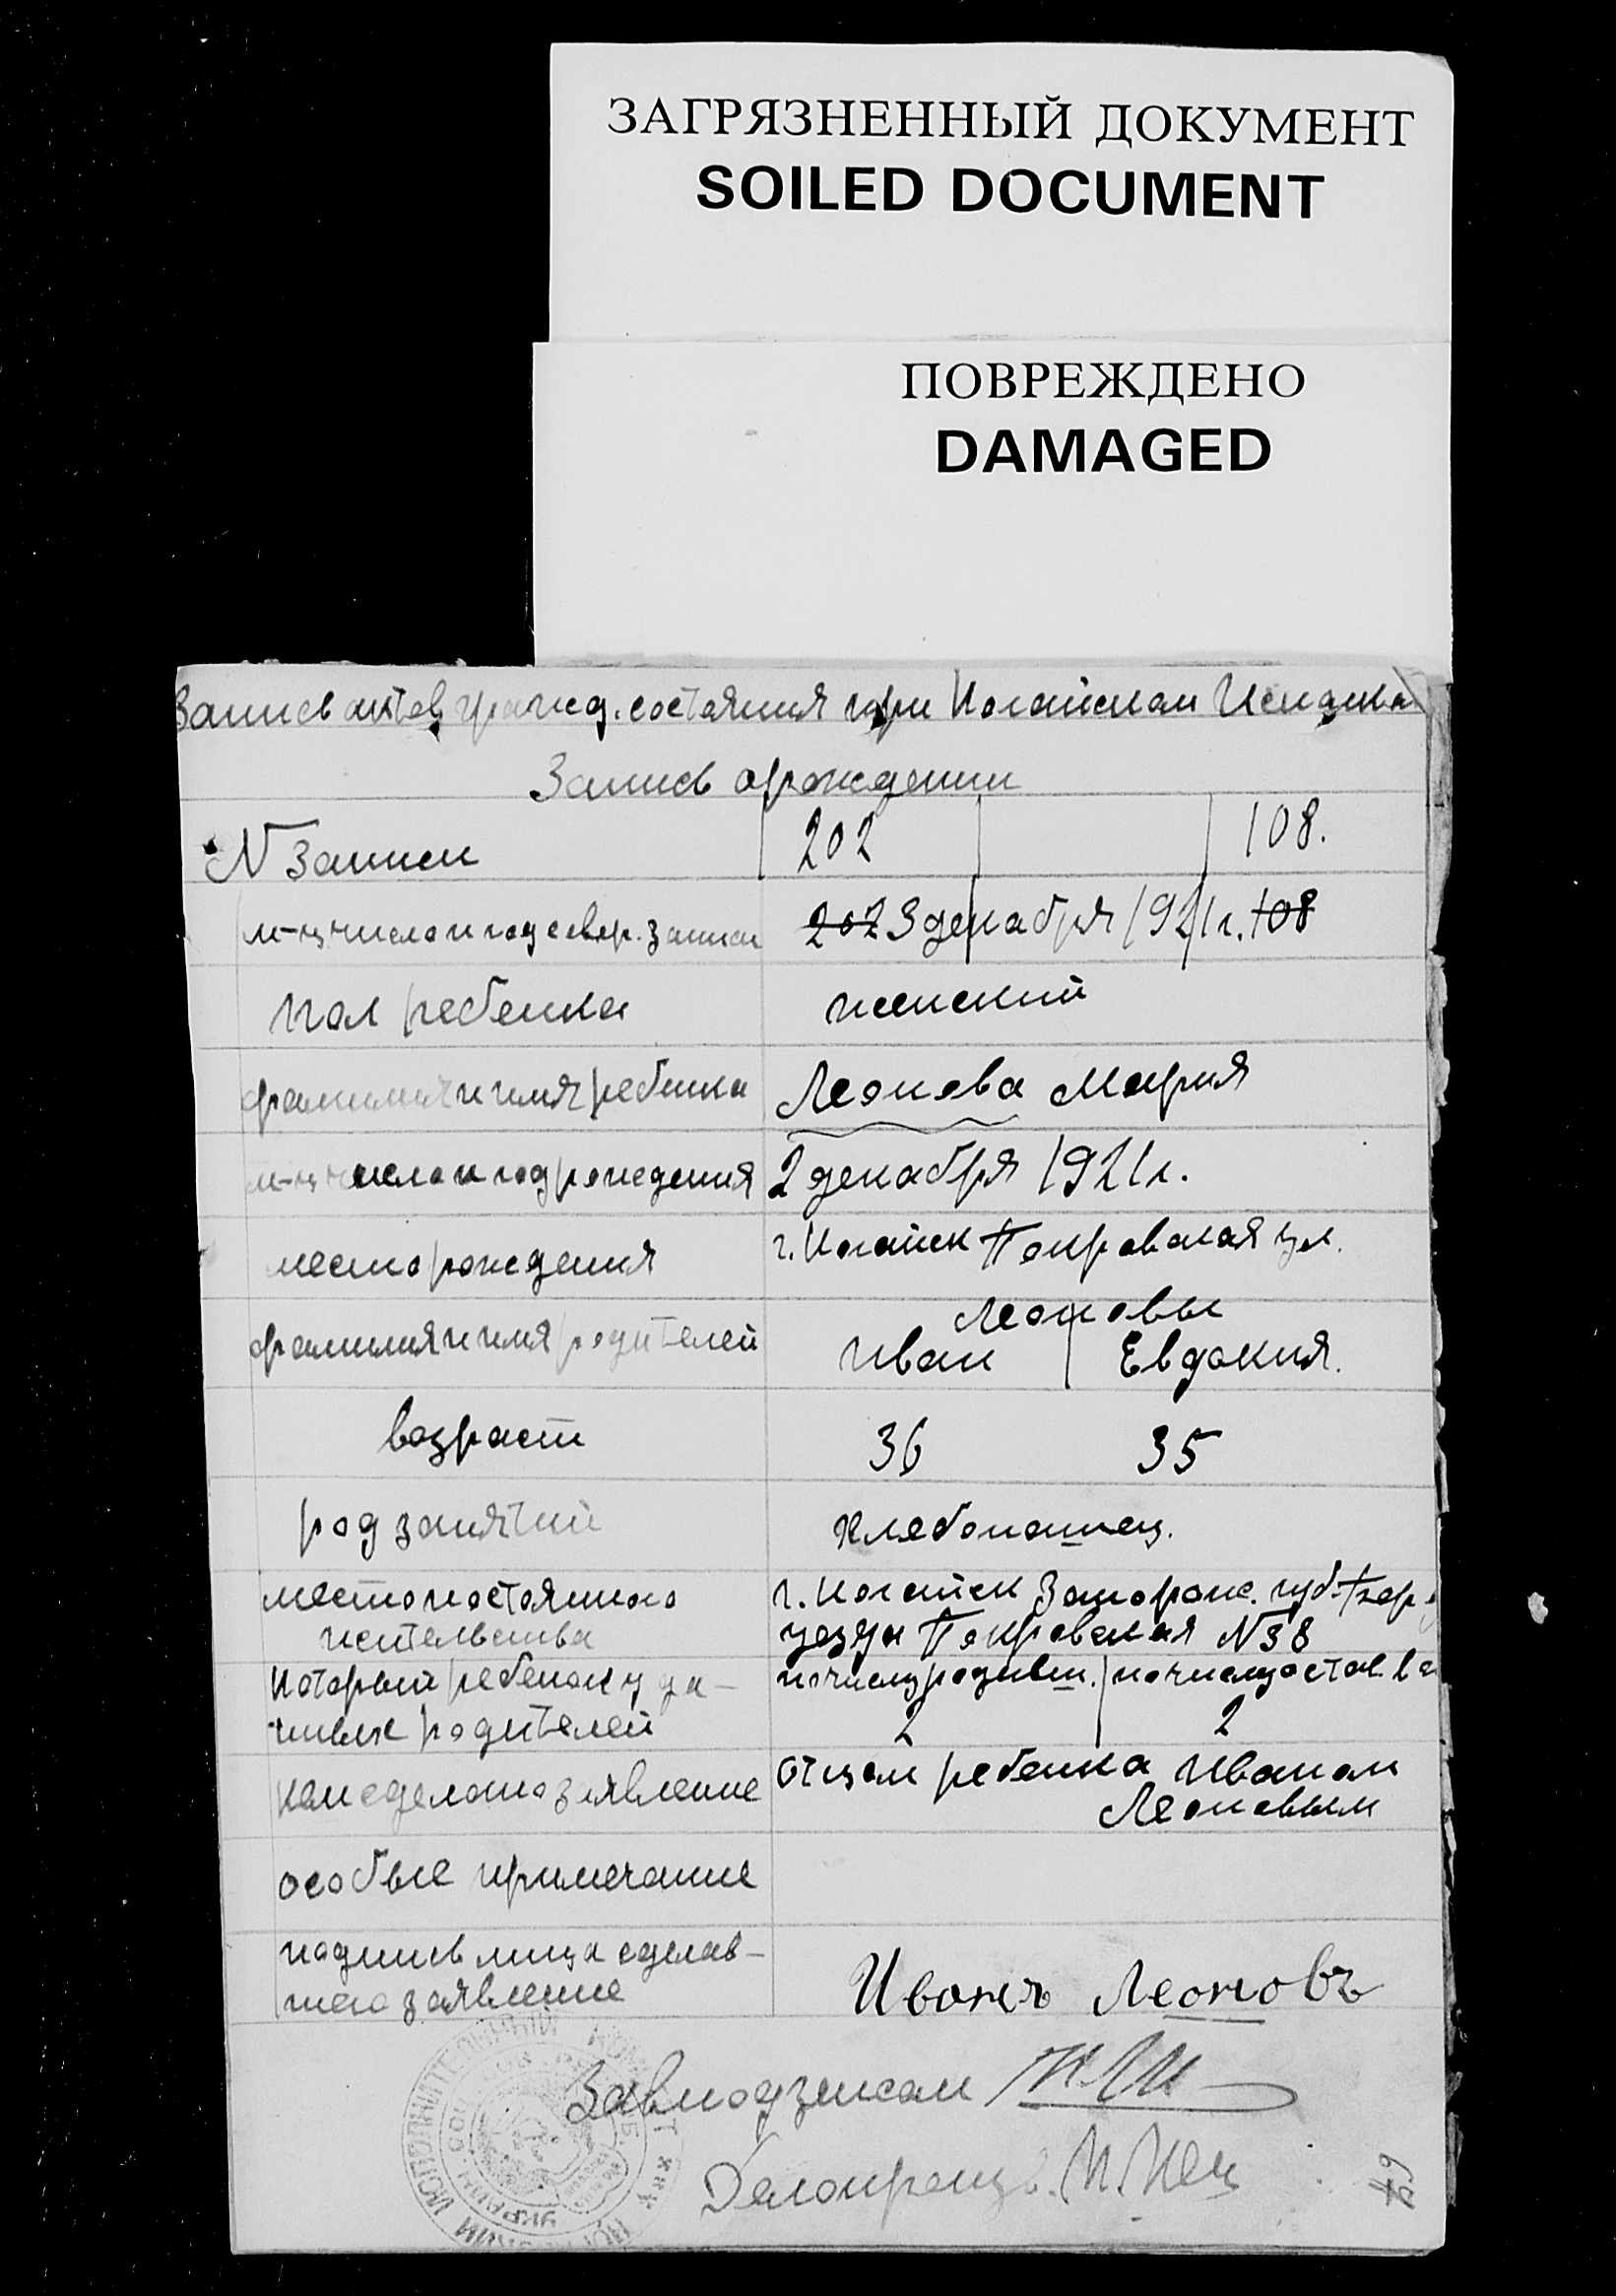 ЗАГРЯЗНЕННЫЙ ДОКУМЕНТ
SOILED DOCUMENT
ПОВРЕЖДЕНО
DAMAGED
Запись актов гражд. состояния при Ногайском Исполко
Запись о рождении
N записи 202 108.
м-ц число и год совер. записи 202 3 декабря 1921 г. 108
пол ребенка женский
фамилия и имя ребенка Леонова Мария
м-ц число и год рождения 2 декабря 1921 г.
место рождения г. Ногайск Покровская ул.
Леоновы
фамилия и имя родителей Иван Евдокия.
возраст 36 35
род занятий хлебопашец.
место постоянного г. Ногайск Запорож. губ.
жительства уезда Покровская N 38
который ребенок у да- по числу родивш. по числу остав. в
нных родителей 2 2
кем сделано заявление Отцом ребенка Иваном
Леоновым
особые примечание
подпись лица сделав-
шего заявление Иванъ Леоновъ
Завподзагсом
Делопроизв.